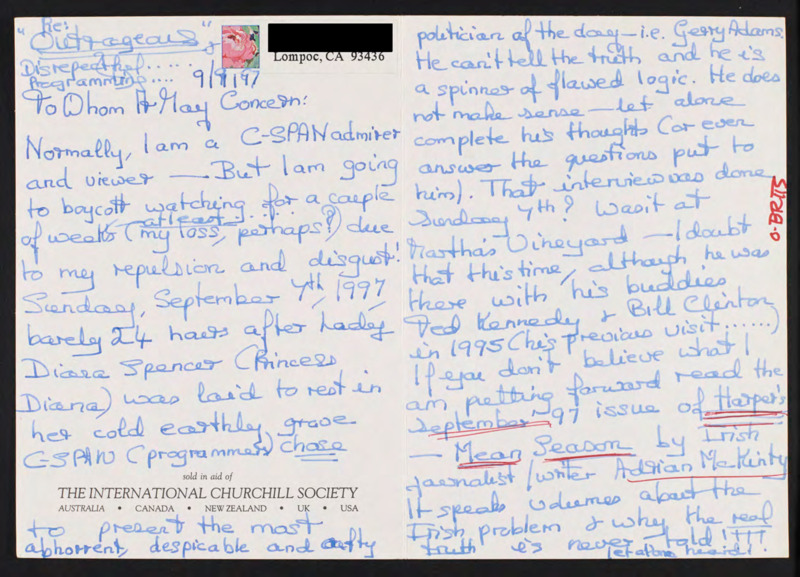 Re:
"Outrageous",
Disrepectful......
Programming....
9/9/97
Lompoc, CA 93436
To Whom It May Concern:
Normally, I am a C-SPAN admirer
and viewer — But I am going
to boycott watching for a couple
at least.....
of weeks (my loss, perhaps?) due
to my repulsion and disgust!
Sunday, September 7th, 1997,
barely 24 hours after Lady
Diana Spencer (Princess
Diana) was laid to rest in
her cold earthly grave
C-SPAN (programmers) chose
sold in aid of
THE INTERNATIONAL CHURCHILL SOCIETY
AUSTRALIA • CANADA • NEW ZEALAND • UK • USA
to present the most
abhorrent, despicable and crafty
politician of the day — i.e. Gerry Adams.
He can't tell the truth and he is
a spinner of flawed logic. He does
not make sense — let alone
complete his thoughts (or even
answer the questions put to
him). That interview was done
Sunday 7th? Was it at
Martha's Vineyard — I doubt
that this time, although he was
there with his buddies
Ted Kennedy & Bill Clinton
in 1995 (his previous visit......)
If you don't believe what I
am putting forward read the
September '97 issue of Harper's
— Mean Season by Irish
journalist/writer Adrian McKinty
It speaks volumes about the
Irish problem & why the real
truth is never told!!!!
let alone heard!
O-BR115